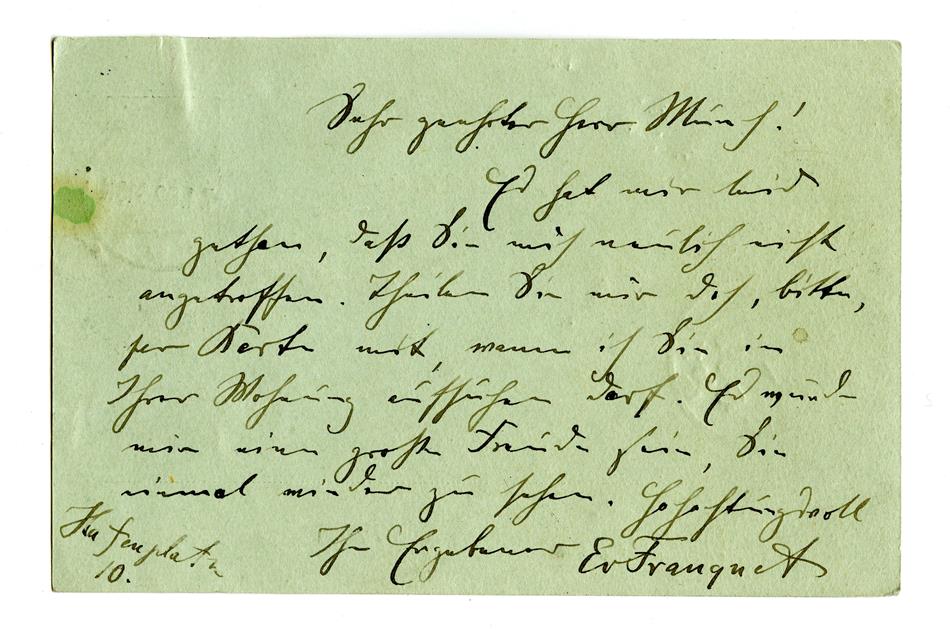 Sehr geehrter Herr Münch!
Es hat mir leid
gethan, daß Sie mich neulich nicht
angetroffen. Theilen Sie mir doch, bitte,
per Karte mit, wann ich Sie in
Ihrer Wohnung aufsuchen darf. Es würde
mir eine große Freude sein, Sie
einmal wieder zu sehen. Hochachtungsvoll
Ihr Ergebener Ev Franquet
10.